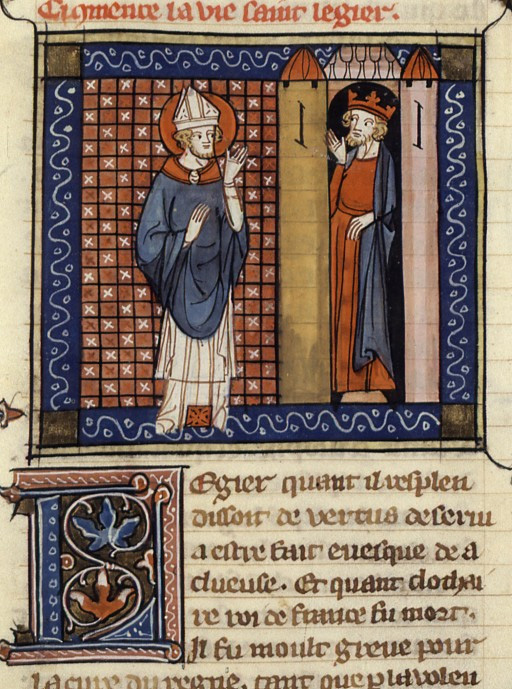 Cy co̅mence la vie saint legier.
Legier quant il resplen
dissoit de vertus deserui
a estre fait euesque de a
clueuse. Et quant clothai
re roi de france fu mort.
Il fu moult greue pour
la cure du regne, tant que p la volen